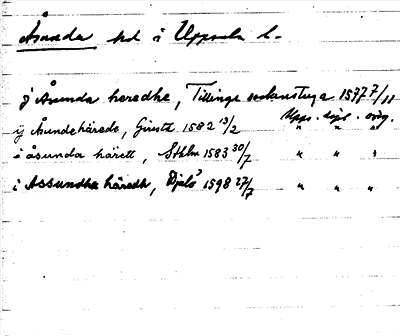 Åsunda hd i Uppsala l.
j Åsunda heredhe, Tillinge sockenstuga 1577 7/11
Upps. dipl. orig.
ij Åsundehärede, 1582 13/2 " " "
i åsunda härett, Sthlm 1583 30/7 " " "
i Assundha häredh, 1598 27/7 " " "